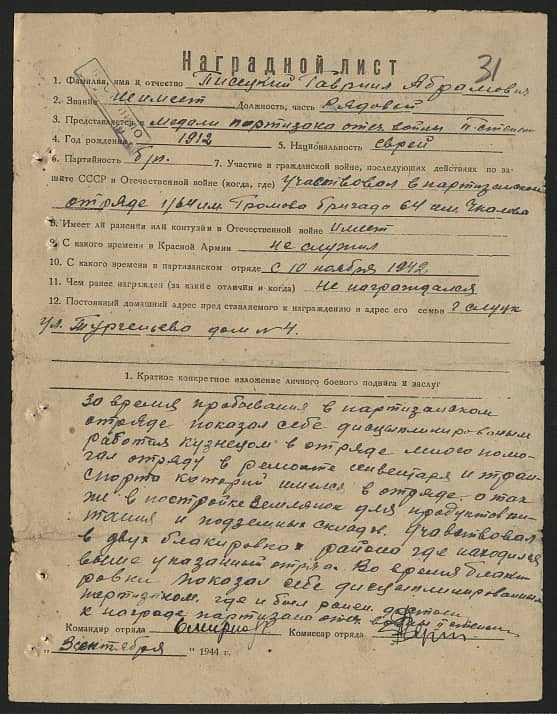 31
Наградной лист
1. Фамилия, имя и отчество Писецкий Гавриил Абрамович
2. Звание Не имеет Должность, часть Рядовой
3. Представляется к Медали партизана отеч. войны II степени
4. Год рождения 1912 5. Национальность еврей
6. Партийность б/п. 7. Участие в гражданской войне, последующих действиях по за-
щите СССР и Отечественной войне (когда, где) Участвовал в партизанском
отряде 1/64 им. Громова бригада 64 им. Чкалова
8. Имеет ли ранения или контузии в Отечественной войне Имеет
9. С какого времени в Красной Армии не служил
10. С какого времени в партизанском отряде с 10 ноября 1942
11. Чем ранее награжден (за какие отличия и когда) не награждался
12. Постоянный домашний адрес представляемого к награждению и адрес его семьи г слуцк
ул. Тургеньева дом № 4.
1. Краткое конкретное изложение личного боевого подвига и заслуг
За время пробывания в партизанском
отряде показал себе дисциплинированым
работая кузнецом в отряде много помо-
гал отряду в ремонте инвентаря и тран-
спорта который имелся в отряде, а так
же в постройке землянок для продуктов пи-
тания и подземных складов. Учавствовал
в двух блакировках района где находился
выше указанный отряд. Во время блаки
ровки показал себе дисциплинированным
партизаном, где и был ранен. достоен
к награде партизана отеч. войны II степени
Командир отряда Комиссар отряда
„ 3 сентября " 1944 г.